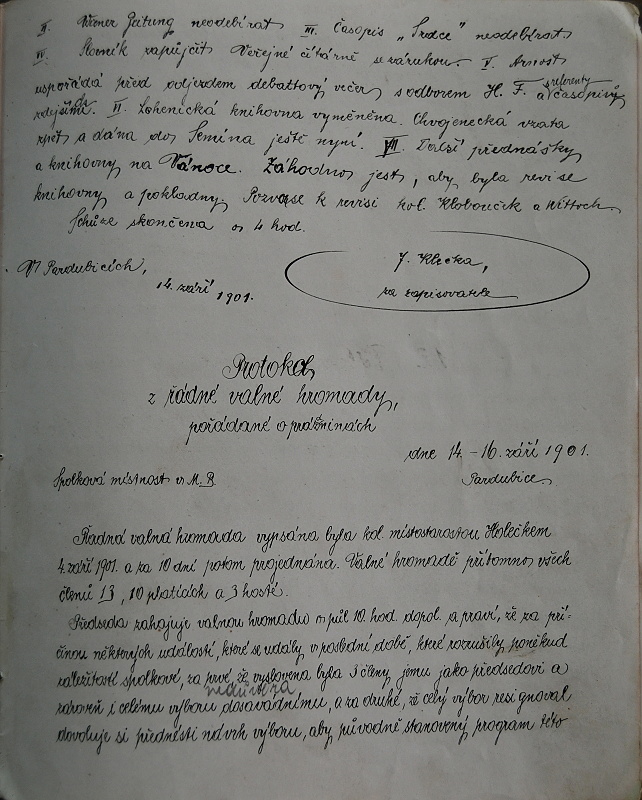 II. Wiener Zeitung neodebírat. III. Časopis „Srdce" neodebírat.
IV. Slovník zapůjčit Veřejné čítárně se zárukou. V. Arnošt
uspořádá před odjezdem debattový večer s odborem H. F. a referenty časopisů
zdejšími. VI. Lohenická knihovna vyměněna. Chvojenecká vzata
zpět a dána do Semína ještě nyní. VII. Další přednášky
a knihovny na Vánoce. Záhodno jest, aby byla revise
knihovny a pokladny. Pozvati se k revisi kol. Klobouček a Wittoch.
Schůze skončena o 4 hod.
V Pardubicích,
14. září 1901.
J. Klečka,
za zapisovatele
Protokol
z řádné valné hromady,
pořádané o prázdninách
dne 14.-16. září 1901.
Pardubice
Spolková místnost v M. B.
Řádná valná hromada vypsána byla kol. místostarostou Holečkem
4. září 1901. a za 10 dní potom projednána. Valné hromadě přítomno všech
členů 13, 10 platících a 3 hosté.
Předseda zahajuje valnou hromadu o půl 10 hod. dopol. a praví, že za pří-
činou některých událostí, které se udály v poslední době, které rozrušily poněkud
záležitosti spolkové, za prvé, že vyslovena byla 3 členy jemu jako předsedovi a
nedůvěra
zároveň i celému výboru dosavadnímu, a za druhé, že celý výbor resignoval
dovoluje si přednésti návrh výboru, aby původně stanovený program této